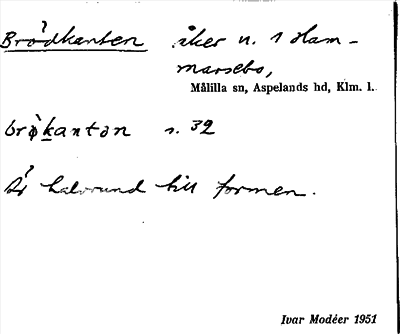 Brödkanten åker n. 1 Ham-
marsebo,
Målilla sn, Aspelands hd, Klm. l.
brø̀kantən s. 32
Är halvrund till formen.
Ivar Modéer 1951